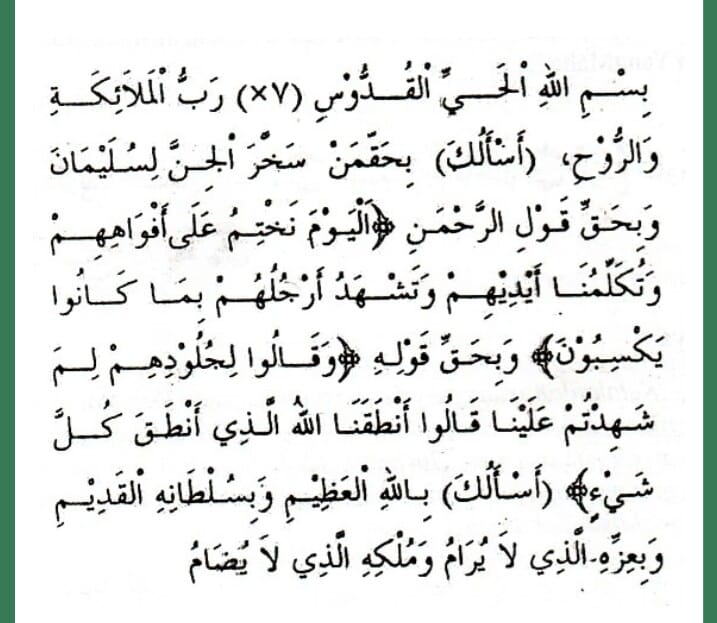 بِسْمِ اللهِ الْحَيِّ الْقُدُّوْسِ (٧×) رَبُّ الْمَلاَئِكَةِ
وَالرُّوْحِ، (أَسْأَلُكَ) بِحَقِّمَنْ سَخَّرَ الْجِنَّ لِسُلَيْمَانَ
وَبِحَقِّ قَوْلِ الرَّحْمَنِ ﴿اَلْيَوْمَ نَخْتِمُ عَلَى أَفْوَاهِهِمْ
وَتُكَلِّمُنَا أَيْدِيْهِمْ وَتَشْهَدُ أَرْجُلُهُمْ بِمَا كَانُوا
يَكْسِبُوْنَ﴾ وَبِحَقِّ قَوْلِهِ ﴿وَقَالُوا لِجُلُوْدِهِمْ لِمَ
شَهِدْتُمْ عَلَيْنا قَالُوا أَنْطَقَنَا اللهُ الَّذِي أَنْطَقَ كُلَّ
شَيءٍ﴾ (أَسْأَلُكَ) بِاللهِ الْعَظِيْمِ وَبِسُلْطَانِهِ الْقَدِيْمِ
وَبِعِزِّهِ الَّذِي لاَ يُرَامُ وَمُلْكِهِ الَّذِي لاَ يُضَامُ